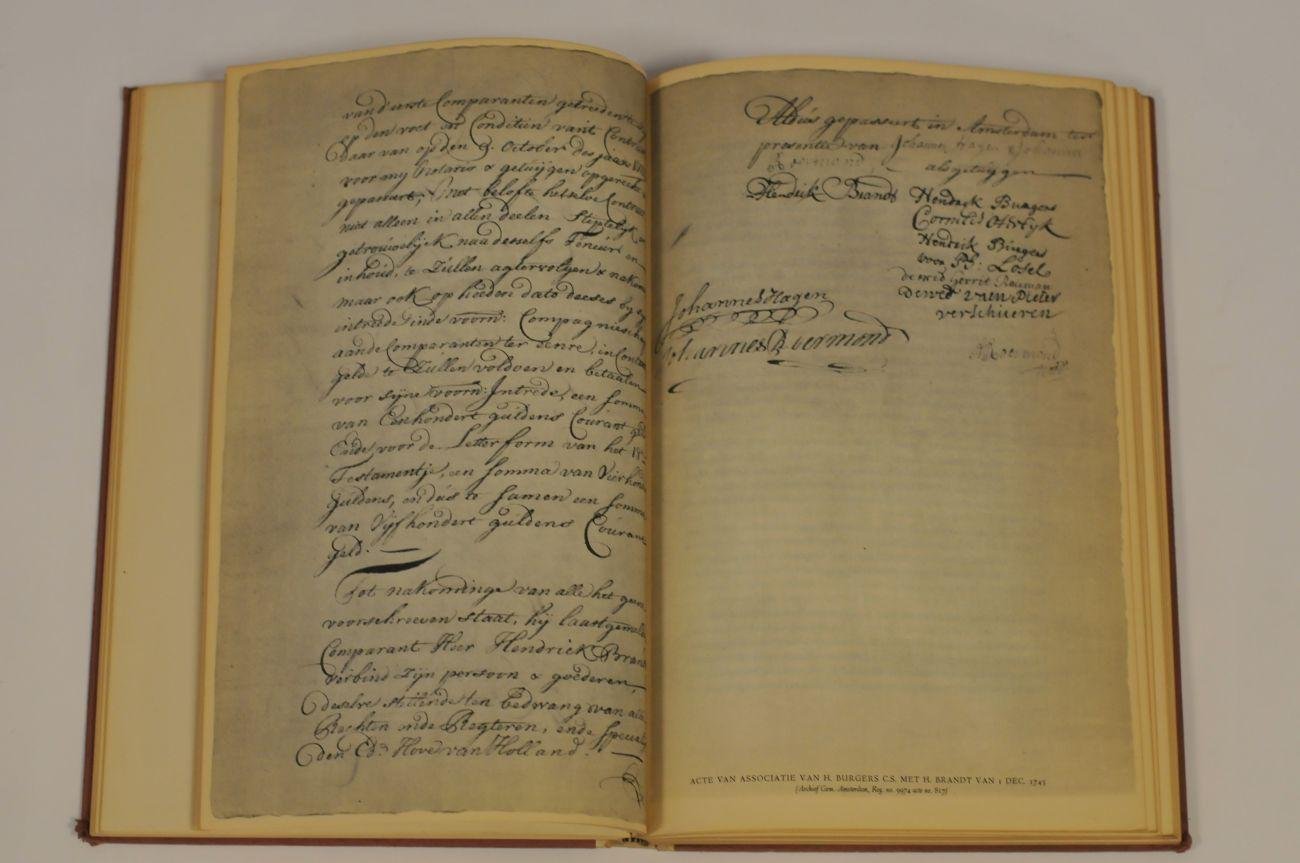 van d'eerste Comparanten getreeden te
op den voet en Conditien van't Contra
daar van op den 9. October des jaars
voor my Notaris & getuijgen opgerecht
gepasseert; Met belofte hetselve Contract
niet alleen in allen deelen Stiptelijk
getrouwelijk naa desselfs Teneur en
inhoud, te Zullen agtervolgen & nakom
maar ook op heeden dato deeses by
intrede inde voorn: Compagnieschap
aande Comparanten ter eenre, in Contan
gelde te Zullen voldoen en betaalen
voor sijne voorn: Intrede, een somma
van Eenhondert guldens Courant geld
Ende voor de Letterform van het
Testamentje, een somma van Vierhond
guldens, en dus te samen een somma
van Vijfhondert guldens Courant
geld.
Tot nakominge van alle het geen
voorschreeven staat, hij laastgemelde
Comparant Heer Hendrick Brand
verbind zijn persoon & goederen,
deselve stellende ten bedwang van alle
Rechten ende Regteren, ende speciaal
den Ed: Hove van Holland.
Aldus gepasseert in Amsterdam ter
presentie van Johannes Hagen & Johannes
Roermond als getuijgen
Hendrik Brandt Hendrik Burgers
Cornelis
Hendrik Burgers
voor P: Losel
de wed Gerrit Rouman
De wed van Pieter
verschueren
Johannes Hagen
Johannes Roermond
ACTE VAN ASSOCIATIE VAN H. BURGERS C.S. MET H. BRANDT VAN 1 DEC. 1745
(Archief Gem. Amsterdam, Reg. no. 9974 acte no. 817)